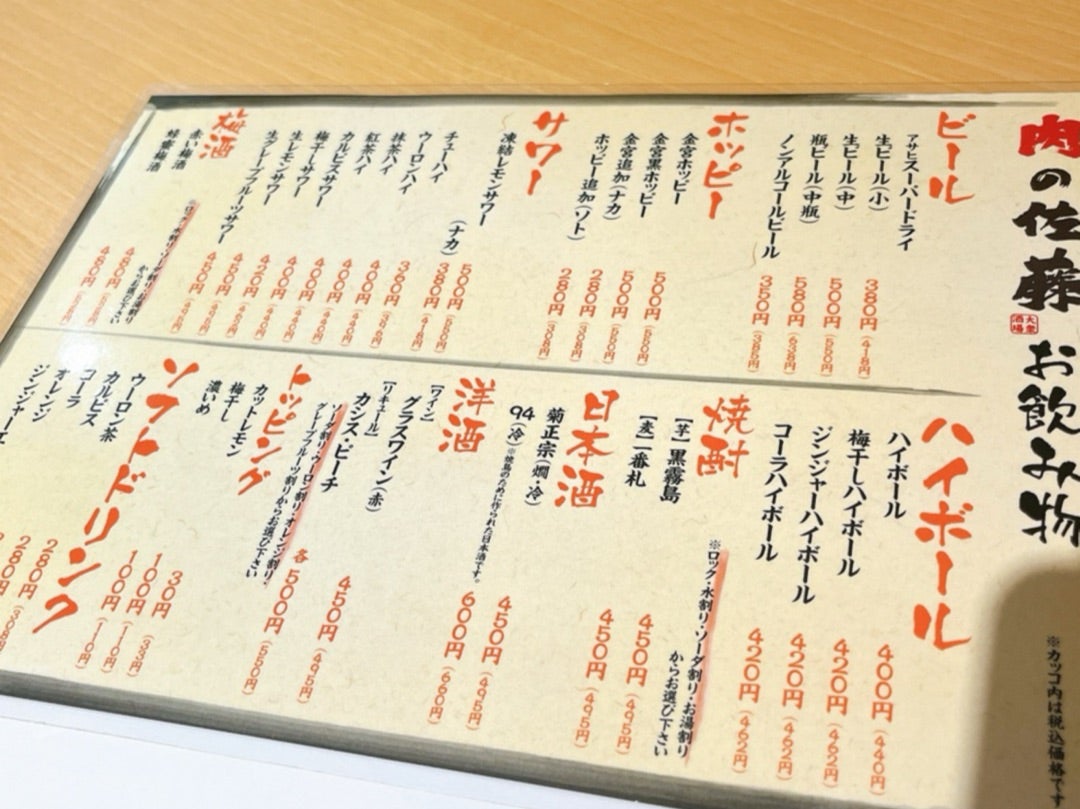 肉の佐藤 大衆酒場 お飲み物
※カッコ内は税込価格です
ビール
アサヒスーパードライ
生ビール(小) 380円(418円)
生ビール(中) 500円(550円)
瓶ビール(中瓶) 580円(638円)
ノンアルコールビール 350円(385円)
ホッピー
金宮ホッピー 500円(550円)
金宮黒ホッピー 500円(550円)
金宮追加(ナカ) 280円(308円)
ホッピー追加(ソト) 280円(308円)
サワー
凍結レモンサワー 500円(550円)
(ナカ) 380円(418円)
チューハイ 360円(396円)
ウーロンハイ 400円(440円)
抹茶ハイ 400円(440円)
紅茶ハイ 400円(440円)
カルピスサワー 400円(440円)
梅干しサワー 420円
生レモンサワー 450円(495円)
生グレープフルーツサワー 450円(495円)
梅酒
※ロック・水割り・ソーダ割り・お湯割り
からお選び下さい
赤い梅酒 480円(528円)
蜂蜜梅酒 480円(528円)
ハイボール
ハイボール 400円(440円)
梅干しハイボール 420円(462円)
ジンジャーハイボール 420円(462円)
コーラハイボール 420円(462円)
焼酎
※ロック・水割り・ソーダ割り・お湯割り
からお選び下さい
【芋】黒霧島 450円(495円)
【麦】一番札 450円(495円)
日本酒
菊正宗(燗・冷) 450円(495円)
94(冷)※焼鳥のために作られた日本酒です。 600円(660円)
洋酒
【ワイン】
グラスワイン(赤) 450円(495円)
【リキュール】
カシス・ピーチ 各500円(550円)
ソーダ割り・ウーロン割り・オレンジ割り・
グレープフルーツ割りからお選び下さい
トッピング
カットレモン 30円(33円)
梅干し 100円(110円)
濃いめ 100円(110円)
ソフトドリンク
ウーロン茶 280円(308円)
カルピス 280円
コーラ
オレンジ
ジンジャーエ